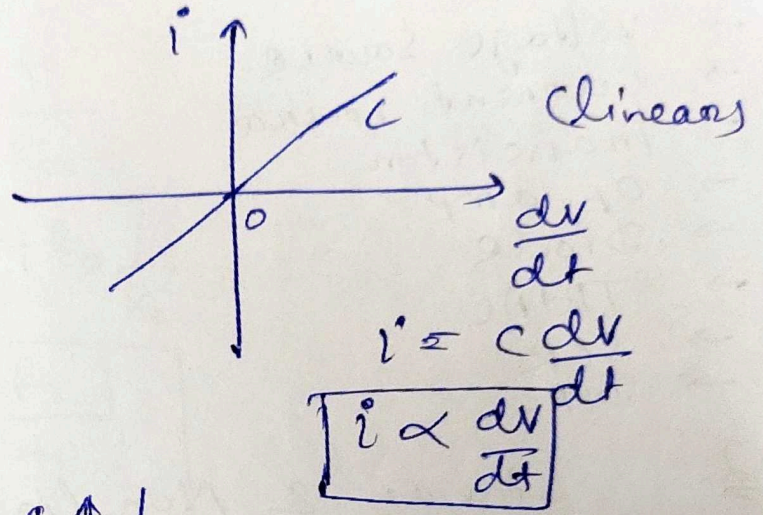 i
C (linear)
0
dv
dt
i = c dv/dt
i ∝ dv/dt